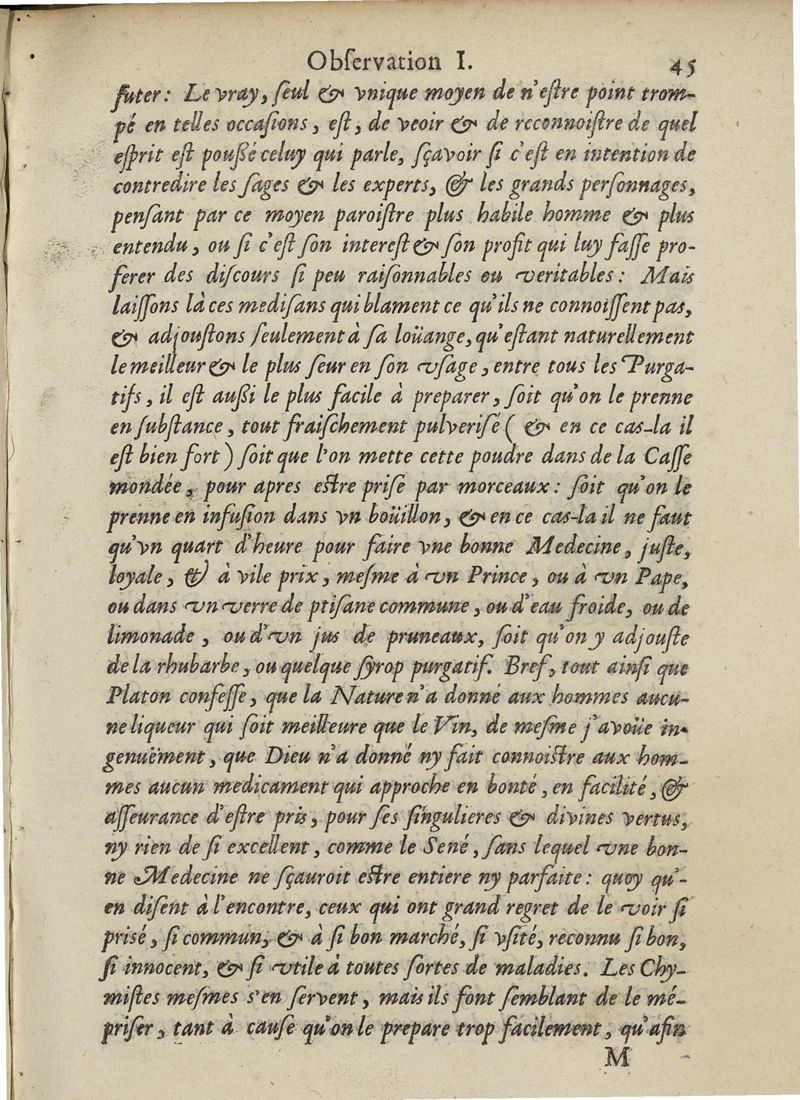 Obſervation I. 45
futer: Le vray, ſeul & vnique moyen de n'eſtre point trom-
pé en telles occaſions, eſt, de veoir & de reconnoiſtre de quel
eſprit eſt pouſſé celuy qui parle, ſçavoir ſi c'eſt en intention de
contredire les ſages & les experts, & les grands perſonnages,
penſant par ce moyen paroiſtre plus habile homme & plus
entendu, ou ſi c'eſt ſon intereſt & ſon profit qui luy faſſe pro-
ferer des diſcours ſi peu raiſonnables ou veritables: Mais
laiſſons là ces mediſans qui blament ce qu'ils ne connoiſſent pas,
& adjouſtons ſeulement à ſa loüange, qu'eſtant naturellement
le meilleur & le plus ſeur en ſon vſage, entre tous les Purga-
tifs, il eſt außi le plus facile à preparer, ſoit qu'on le prenne
en ſubſtance, tout fraiſchement pulveriſé ( & en ce cas-la il
eſt bien fort ) ſoit que l'on mette cette poudre dans de la Caſſe
mondée, pour apres eſtre priſe par morceaux: ſoit qu'on le
prenne en infuſion dans vn boüillon, & en ce cas-la il ne faut
qu'vn quart d'heure pour faire vne bonne Medecine, juſte,
loyale, & à vile prix, meſme à vn Prince, ou à vn Pape,
ou dans vn verre de ptiſane commune, ou d'eau froide, ou de
limonade, ou d'vn jus de pruneaux, ſoit qu'on y adjouſte
de la rhubarbe, ou quelque ſyrop purgatif. Bref, tout ainſi que
Platon confeſſe, que la Nature n'a donné aux hommes aucu-
ne liqueur qui ſoit meilleure que le Vin, de meſme j'avoüe in-
genuëment, que Dieu n'a donné ny fait connoiſtre aux hom-
mes aucun medicament qui approche en bonté, en facilité, &
aſſeurance d'eſtre pris, pour ſes ſingulieres & divines vertus,
ny rien de ſi excellent, comme le Sené, ſans lequel vne bon-
ne Medecine ne ſçauroit eſtre entiere ny parfaite: quoy qu'-
en diſent à l'encontre, ceux qui ont grand regret de le voir ſi
priſé, ſi commun, & à ſi bon marché, ſi vſité, reconnu ſi bon,
ſi innocent, & ſi vtile à toutes ſortes de maladies. Les Chy-
miſtes meſmes s'en ſervent, mais ils font ſemblant de le mé-
priſer, tant à cauſe qu'on le prepare trop facilement, qu'afin
M